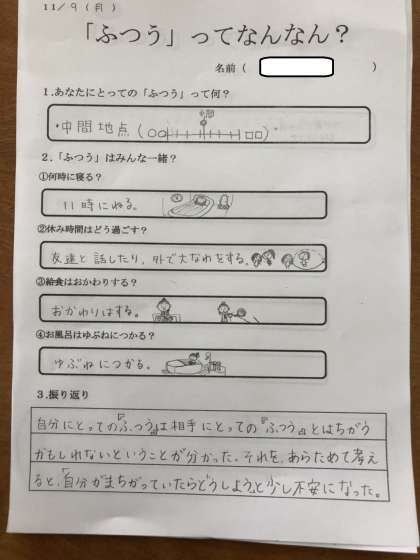 11/9(月)
「ふつう」ってなんなん？
名前（ ）
1.あなたにとっての「ふつう」って何？
・中間地点（○○ □□）
2.「ふつう」はみんな一緒？
①何時に寝る？
11時にねる。
②休み時間はどう過ごす？
友達と話したり、外で大なわをする。
③給食はおかわりする？
おかわりはする。
④お風呂はゆぶねにつかる？
ゆぶねにつかる。
3.振り返り
自分にとっての『ふつう』は相手にとっての『ふつう』とはちがう
かもしれないということが分かった。それを、あらためて考え
ると、「自分がまちがっていたらどうしよう」と少し不安になった。